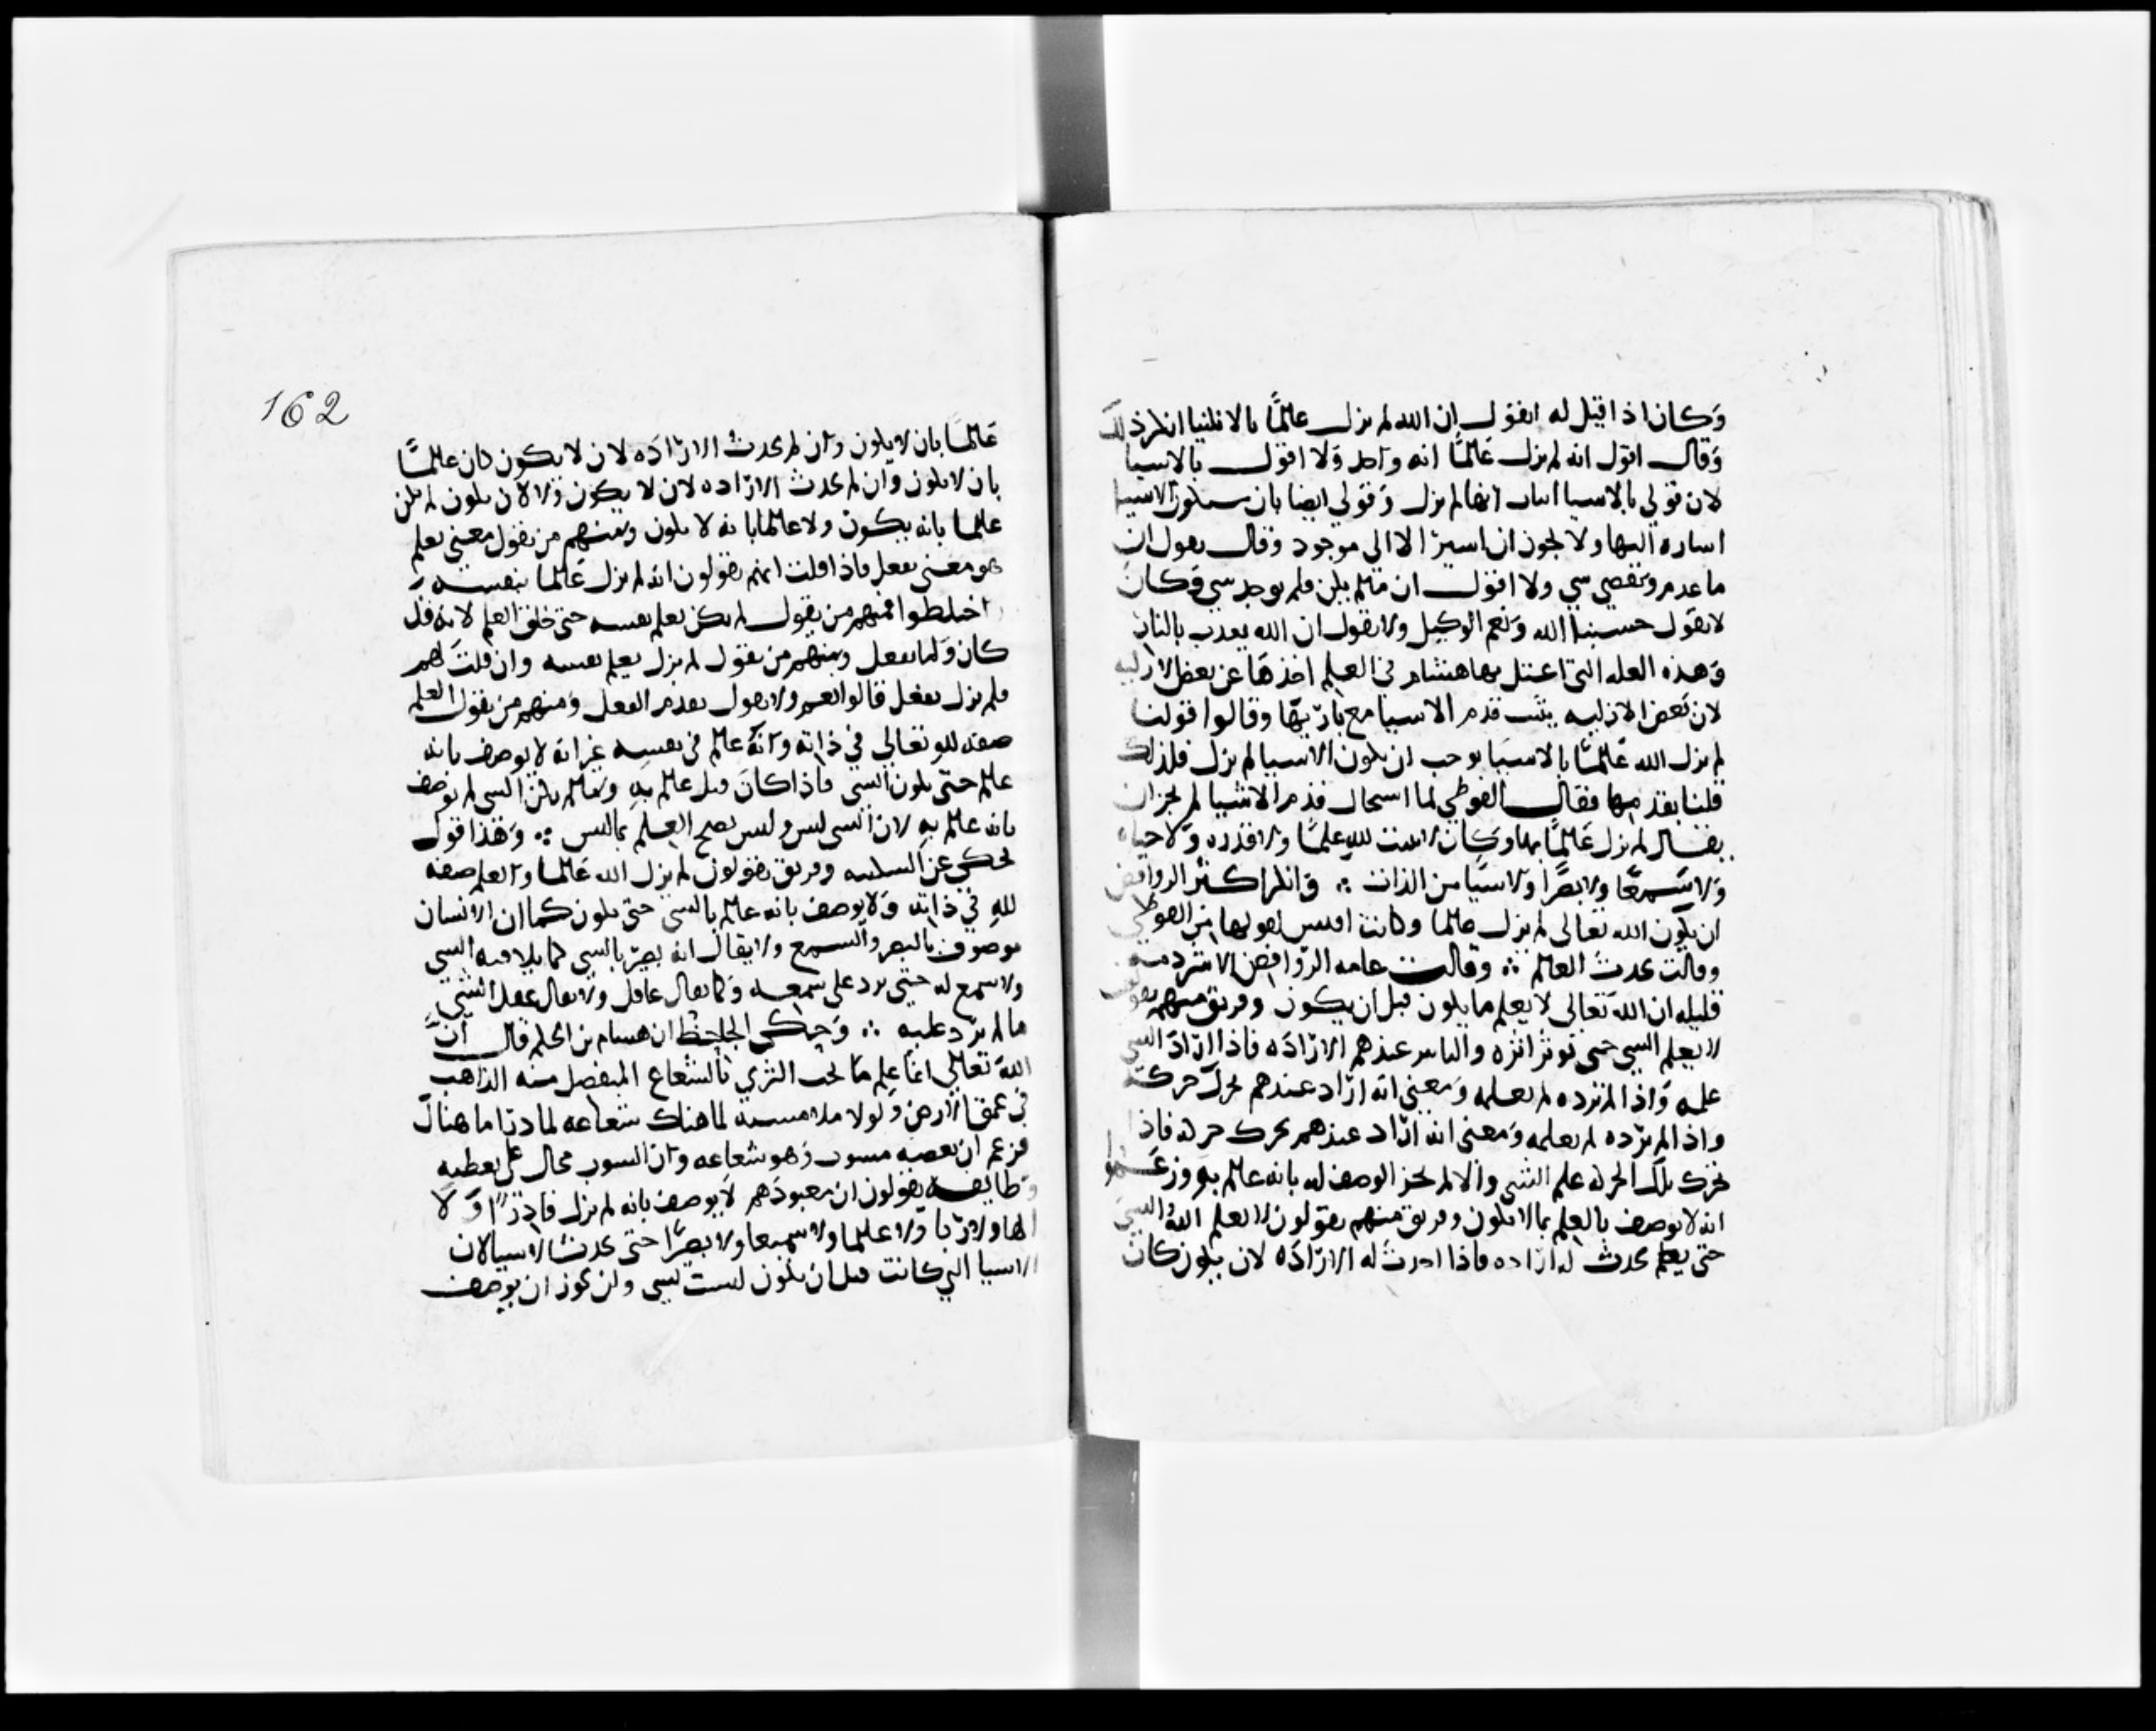 وكان اذا قيل له اتقول ان الله لم يزل عالما بالاشيا انكر ذلك
وقال اقول انه لم يزل عالما انه واحد ولا اقول بالاشيا
لان قولي بالاشيا اثبات انها لم تزل وقولي ايضا بان ستكون الاشيا
اشاره اليها ولا يجوز ان اشير الا الى موجود وقال يقول ان
ما عدم وتقضى شي ولا اقول ان ما لم يكن ولم يوجد شي وكان
لا يقول حسبنا الله ونعم الوكيل ولا يقول ان الله يعذب بالنار
وهذه العله التي اعتل بها هشام في العلم اخذها عن بعض الازليه
لان بعض الازليه يثبت قدم الاشيا مع باريها وقالوا قولنا
لم يزل الله عالما بالاشيا يوجب ان تكون الاشيا لم تزل فلذلك
قلنا بقدمها فقال الفوطي لما استحال قدم الاشيا لم يجز ان
يقال لم يزل عالما بها وكان لا يثبت لله علما ولا قدره ولا حياه
ولا سمعا ولا بصرا ولا شيا من الذات ∴ وانكر اكثر الروافض
ان يكون الله تعالى لم يزل عالما وكانت اقيس لقولها من الفوطي
وقالت بحدث العلم ∴ وقالت عامه الروافض الا شرذمه
قليله ان الله تعالى لا يعلم ما يكون قبل ان يكون وفريق منهم يقولون
لا يعلم الشي حتى يوثر اثره والتاثير عندهم الاراده فاذا اراد الشي
علمه واذا لم يرده لم يعلمه ومعنى انه اراد عندهم تحرك حركه
واذا لم يرده لم يعلمه ومعنى انه اراد عندهم تحرك حركه فاذا
تحرك تلك الحركه علم الشي والا لم يجز الوصف له بانه عالم به وزعموا
انه لا يوصف بالعلم بما لا يكون وفريق منهم يقولون لا يعلم الله الشي
حتى يحدث له اراده فاذا احدث له الاراده لان يكون كان
162
عالما بان لا يكون وان لم يحدث الاراده لان لا يكون كان عالما
بان لا يكون وان لم يحدث الاراده لان لا يكون ولا لان يكون لم يكن
عالما بانه يكون ولا عالما بانه لا يكون ومنهم من يقول معنى يعلم
هو معنى يفعل فاذا قلت لهم تقولون انه لم يزل عالما بنفسه
اختلطوا فمنهم من يقول لم يكن يعلم نفسه حتى خلق العلم لانه قد
كان ولما يفعل ومنهم من يقول لم يزل يعلم نفسه وان قلت لهم
فلم يزل يفعل قالوا نعم ولا نقول بقدم الفعل ومنهم من يقول العلم
صفه لله تعالى في ذاته وانه عالم في نفسه غير انه لا يوصف بانه
عالم حتى يكون الشي فاذا كان قيل عالم به وما لم يكن الشي لم يوصف
بانه عالم به لان الشي ليس وليس يصح العلم بما ليس ∴ وهذا قول
يحكى عن السكاكيه وفريق يقولون لم يزل الله عالما والعلم صفه
لله في ذاته ولا يوصف بانه عالم بالشي حتى يكون كما ان الانسان
موصوف بالبصر والسمع ولا يقال انه بصير بالشي كما يلاقيه الشي
ولا سميع له حتى يرد على سمعه وكما يقال عاقل ولا يقال عقل الشي
ما لم يرد عليه ∴ وحكى الجاحظ ان هشام بن الحكم قال ان
الله تعالى انما علم ما تحت الثرى بالشعاع المنفصل منه الذاهب
في عمق الارض ولولا ملامسته لما هناك شعاعه لما درا ما هناك
فزعم ان بعضه مشوب وهو شعاعه وان الشوب محال على بعضه
وطايفه يقولون ان معبودهم لا يوصف بانه لم يزل قادرا ولا
الها ولا ربا ولا عالما ولا سميعا ولا بصيرا حتى يحدث الاشيا لان
الاشيا التي كانت قبل ان تكون ليست بشي ولن يجوز ان يوصف